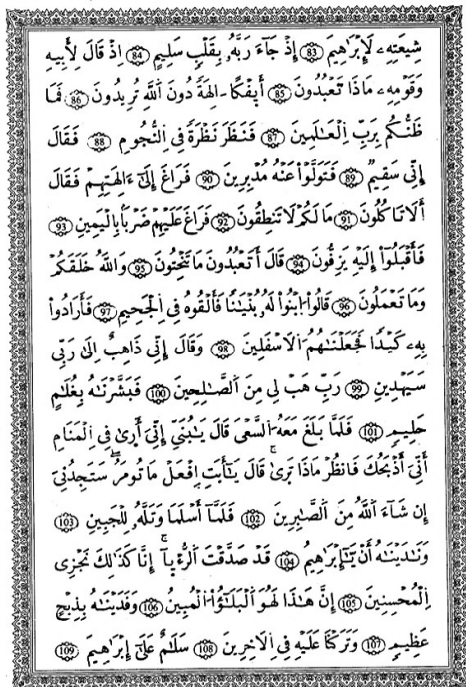 شِيعَتِهِۦ لَإِبْرَٰهِيمَ 83 إِذْ جَآءَ رَبَّهُۥ بِقَلْبٖ سَلِيمٍ 84 اِذْ قَالَ لِأَبِيهِ
وَقَوْمِهِۦ مَاذَا تَعْبُدُونَ 85 أَئِفْكاً ءَالِهَةٗ دُونَ اَللَّهِ تُرِيدُونَ 86 فَمَا
ظَنُّكُم بِرَبِّ اِلْعَٰلَمِينَ 87 فَنَظَرَ نَظْرَةٗ فِي اِلنُّجُومِ 88 فَقَالَ
إِنِّي سَقِيمٞ 89 فَتَوَلَّوْاْ عَنْهُ مُدْبِرِينَ 90 فَرَاغَ إِلَىٰٓ ءَالِهَتِهِمْ فَقَالَ
أَلَا تَأْكُلُونَ 91 مَا لَكُمْ لَا تَنطِقُونَ 92 فَرَاغَ عَلَيْهِمْ ضَرْبَاَۢ بِالْيَمِينِ 93
فَأَقْبَلُوٓاْ إِلَيْهِ يَزِفُّونَ 94 قَالَ أَتَعْبُدُونَ مَا تَنْحِتُونَ 95 وَاللَّهُ خَلَقَكُمْ
وَمَا تَعْمَلُونَ 96 قَالُواْ اُبْنُواْ لَهُۥ بُنْيَٰناٗ فَأَلْقُوهُ فِي اِلْجَحِيمِ 97 فَأَرَادُواْ
بِهِۦ كَيْداٗ فَجَعَلْنَٰهُمُ اُلْأَسْفَلِينَ 98 وَقَالَ إِنِّي ذَاهِبٌ اِلَىٰ رَبِّي
سَيَهْدِينِ 99 رَبِّ هَبْ لِي مِنَ اَلصَّٰلِحِينَ 100 فَبَشَّرْنَٰهُ بِغُلَٰمٍ
حَلِيمٖ 101 فَلَمَّا بَلَغَ مَعَهُ اُلسَّعْيَ قَالَ يَٰبُنَيِّ إِنِّيَ أَرَىٰ فِي اِلْمَنَامِ
أَنِّيَ أَذْبَحُكَ فَانظُرْ مَاذَا تَرَىٰ قَالَ يَٰٓأَبَتِ اِفْعَلْ مَا تُومَرُ سَتَجِدُنِيَ
إِن شَآءَ اَللَّهُ مِنَ اَلصَّٰبِرِينَ 102 فَلَمَّآ أَسْلَمَا وَتَلَّهُۥ لِلْجَبِينِ 103
وَنَٰدَيْنَٰهُ أَنْ يَّٰٓإِبْرَٰهِيمُ 104 قَدْ صَدَّقْتَ اَلرُّءْيَآ إِنَّا كَذَٰلِكَ نَجْزِي
اِلْمُحْسِنِينَ 105 إِنَّ هَٰذَا لَهُوَ اَلْبَلَٰٓؤُاْ اُلْمُبِينُ 106 وَفَدَيْنَٰهُ بِذِبْحٍ
عَظِيمٖ 107 وَتَرَكْنَا عَلَيْهِ فِي اِلْأٓخِرِينَ 108 سَلَٰمٌ عَلَىٰٓ إِبْرَٰهِيمَ 109